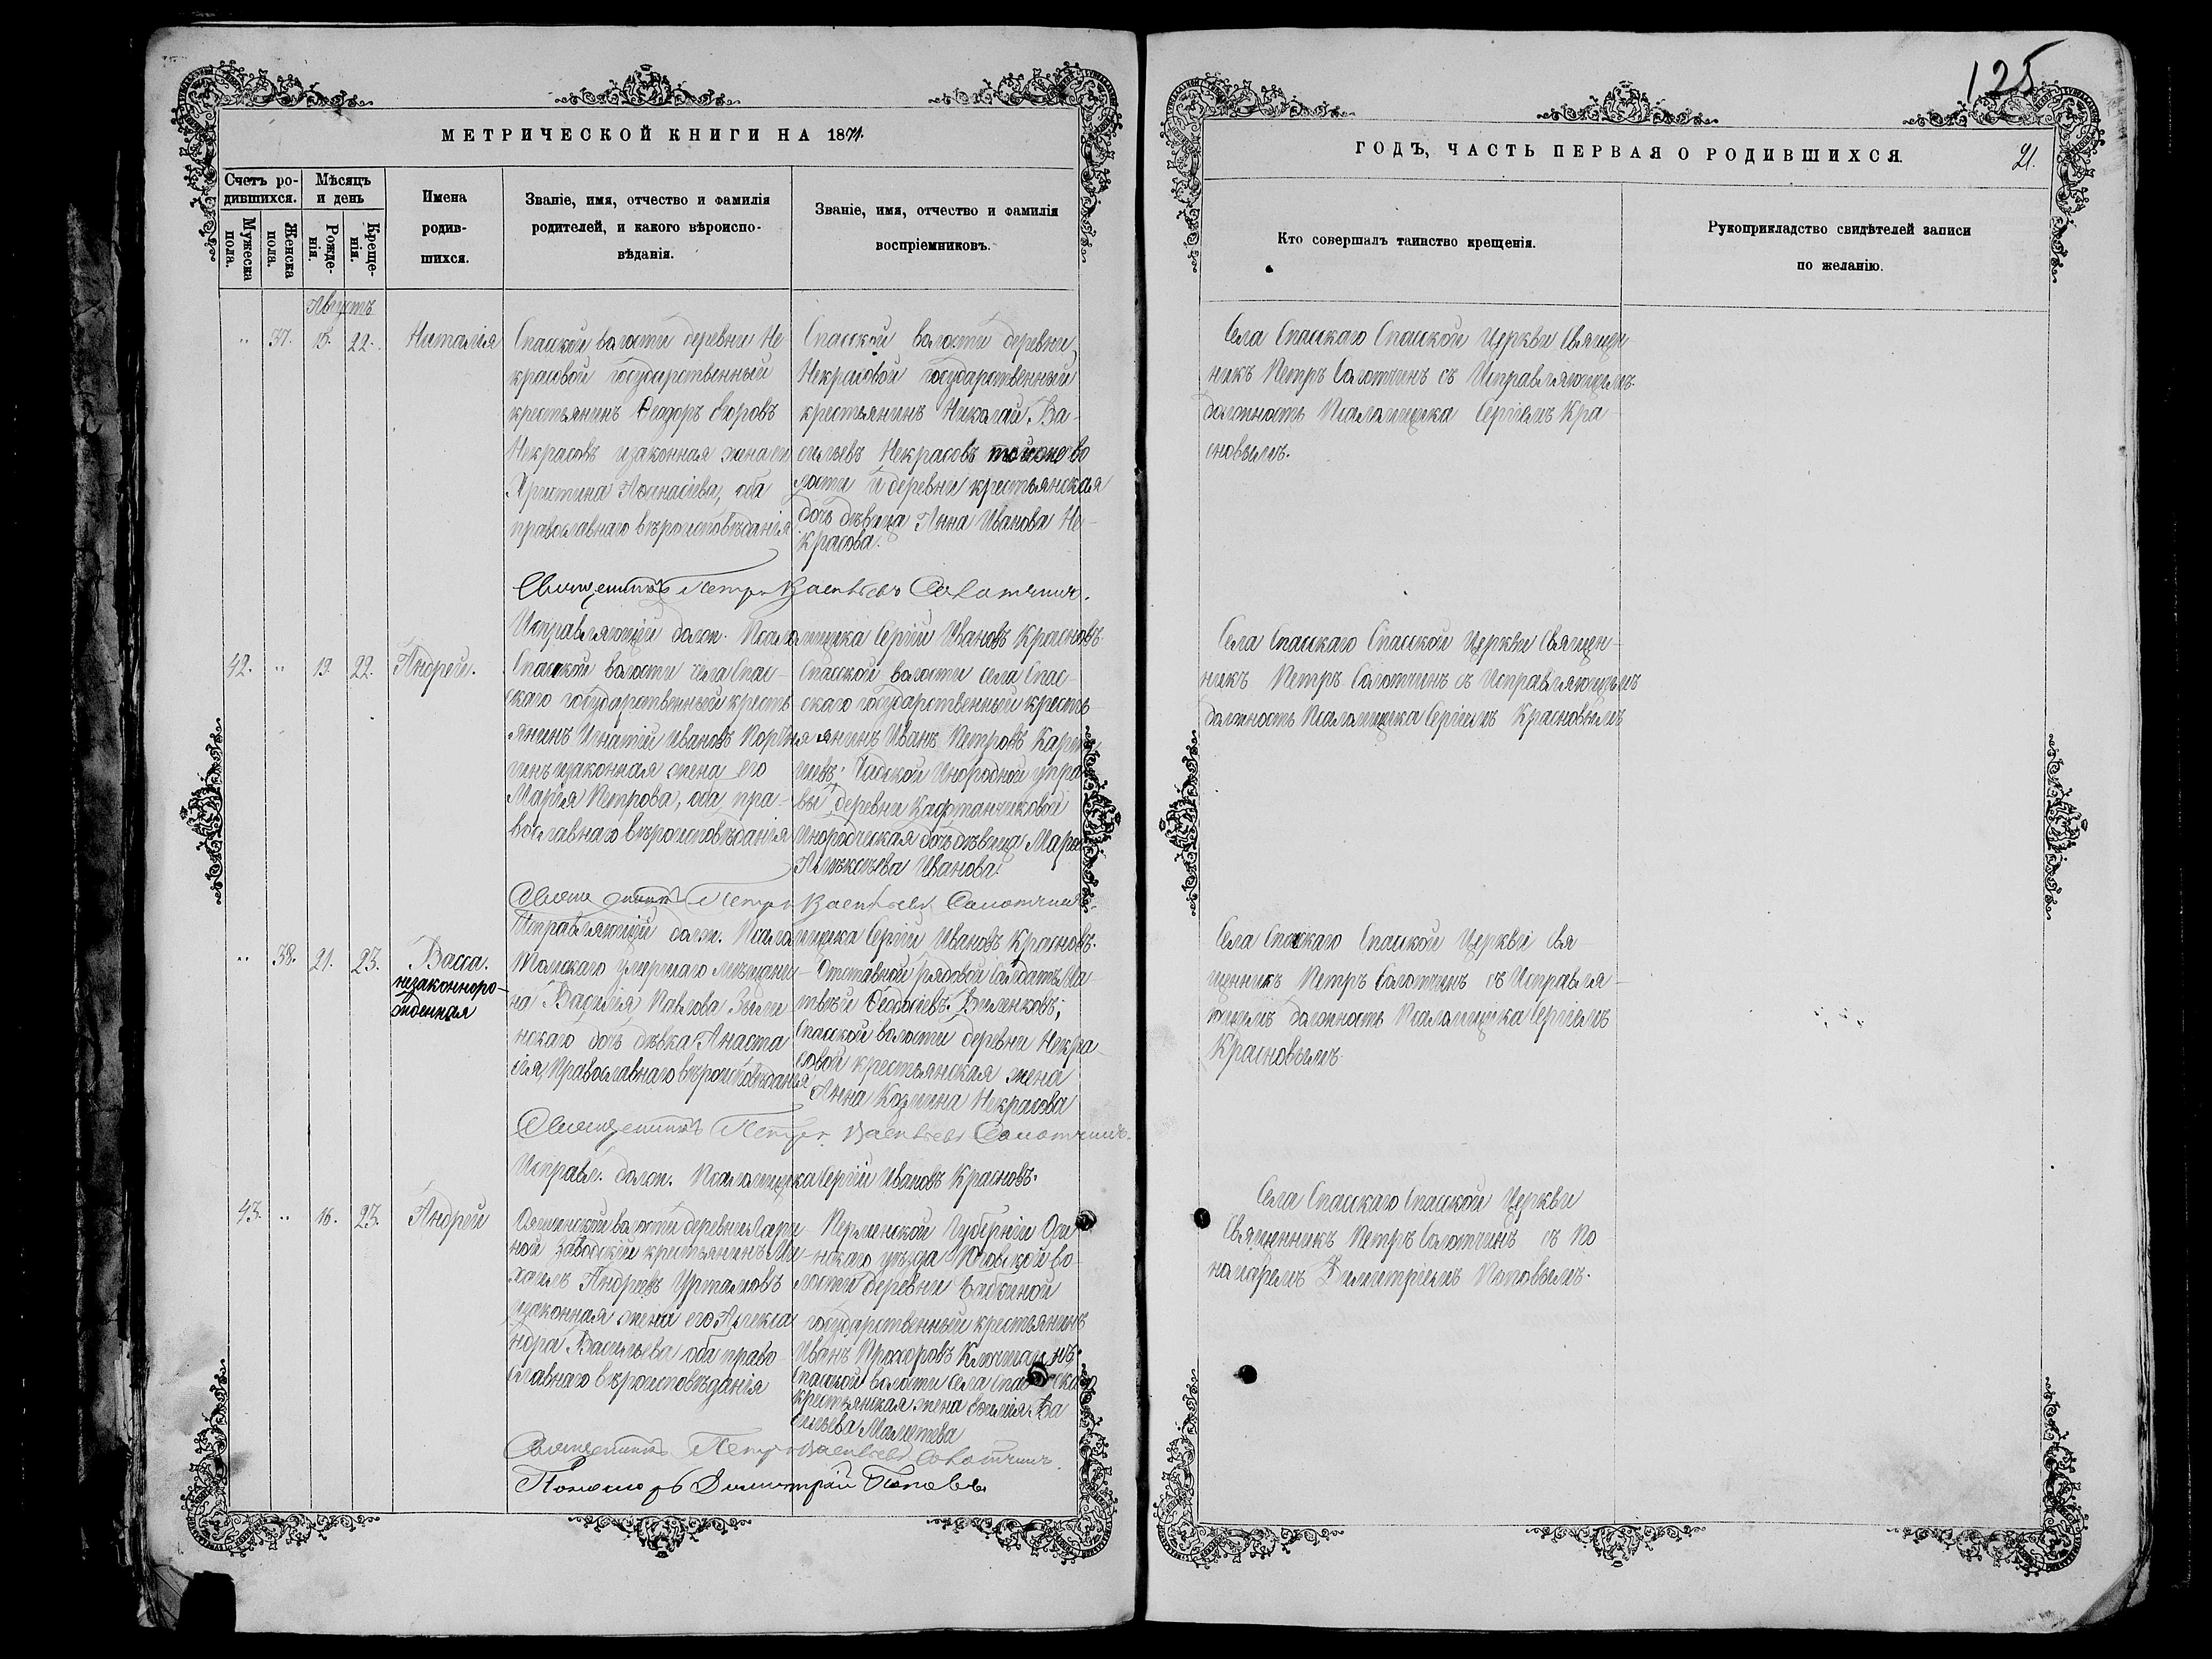 МЕТРИЧЕСКОЙ КНИГИ НА 1871.
Счетъ ро-
дившихся.
Мужеска пола.
Женска пола.
Мѣсяцъ
и день
Рожде-
нія.
Креще-
нія.
Имена
родив-
шихся.
Званіе, имя, отчество и фамилія
родителей, и какого вѣроиспо-
вѣданія.
Званіе, имя, отчество и фамилія
воспріемниковъ.
Августъ
" 37. 18. 22. Наталія
Спасской волости деревни Не
красовой государственный
крестьянинъ Феодоръ
Некрасовъ изаконная жена ею
Христина Аѳанасіева, оба
православнаго вѣроисповѣданія
Спасской волости деревни
Некрасовой государственный
крестьянинъ Николай Ва-
сильевъ Некрасовъ тойже во
лости и деревни крестьянская
дочь дѣвица Анна Иванова Не-
красова.
Священникъ Петръ Васильевъ Солотчинъ.
Исправляющій долж. Псаломщика Сергій Ивановъ Красновъ
42. " 19. 22. Андрей.
Спасской волости села Спас-
скаго государственный кресть
янинъ Игнатій Ивановъ
изаконная жена его
Марія Петрова, оба пра-
вославнаго вѣроисповѣданія
Спасской волости села Спас-
скаго государственный кресть
янинъ Иванъ Петровъ
Инородной упра
вы деревни Кафтанчиковой
Инородческая дочь дѣвица
Алексѣева Иванова.
Священникъ Петръ Васильевъ Солотчинъ.
Исправляющій долж. Псаломщика Сергій Ивановъ Красновъ.
" 38. 21. 23. Васса.
незаконноро-
жденная
Томскаго умершаго мѣщани-
на Василія Павлова
дочь дѣвка Анаста
сія, Православнаго вѣроисповѣданія
Отставной рядовой Солдатъ Ма-
твѣй
Спасской волости деревни Некра-
совой крестьянская жена
Анна Козмина Некрасова
Священникъ Петръ Васильевъ Солотчинъ.
Исправл. долж. Псаломщика Сергій Ивановъ Красновъ.
43. " 16. 23. Андрей
волости деревни
заводскій крестьянинъ Ми-
хаилъ Андреевъ Уртамовъ
изаконная жена его Алекса
ндра Васильева оба право
славнаго вѣроисповѣданія
Пермской Губерніи
уѣзда во-
лости деревни Бабкиной
государственный крестьянинъ
Иванъ Прохоровъ
Спасской волости села Спасскаго
крестьянская жена Ва
сильева
Священникъ Петръ Васильевъ Солотчинъ.
Пономарь Димитрій Поповъ.
125
ГОДЪ, ЧАСТЬ ПЕРВАЯ О РОДИВШИХСЯ.
21.
Кто совершалъ таинство крещенія.
Рукоприкладство свидѣтелей записи
по желанію.
Села Спасскаго Спасской Церкви Священ
никъ Петръ Солотчинъ съ Исправляющимъ
должность Псаломщика Сергіемъ Кра-
сновымъ.
Села Спасскаго Спасской Церкви Священ-
никъ Петръ Солотчинъ съ Исправляющимъ
должность Псаломщика Сергіемъ Красновымъ
Села Спасскаго Спасской Церкви Свя-
щенникъ Петръ Солотчинъ съ Исправля-
ющимъ должность Псаломщика Сергіемъ
Красновымъ
Села Спасскаго Спасской Церкви
Священникъ Петръ Солотчинъ съ По
номаремъ Димитріемъ Поповымъ.